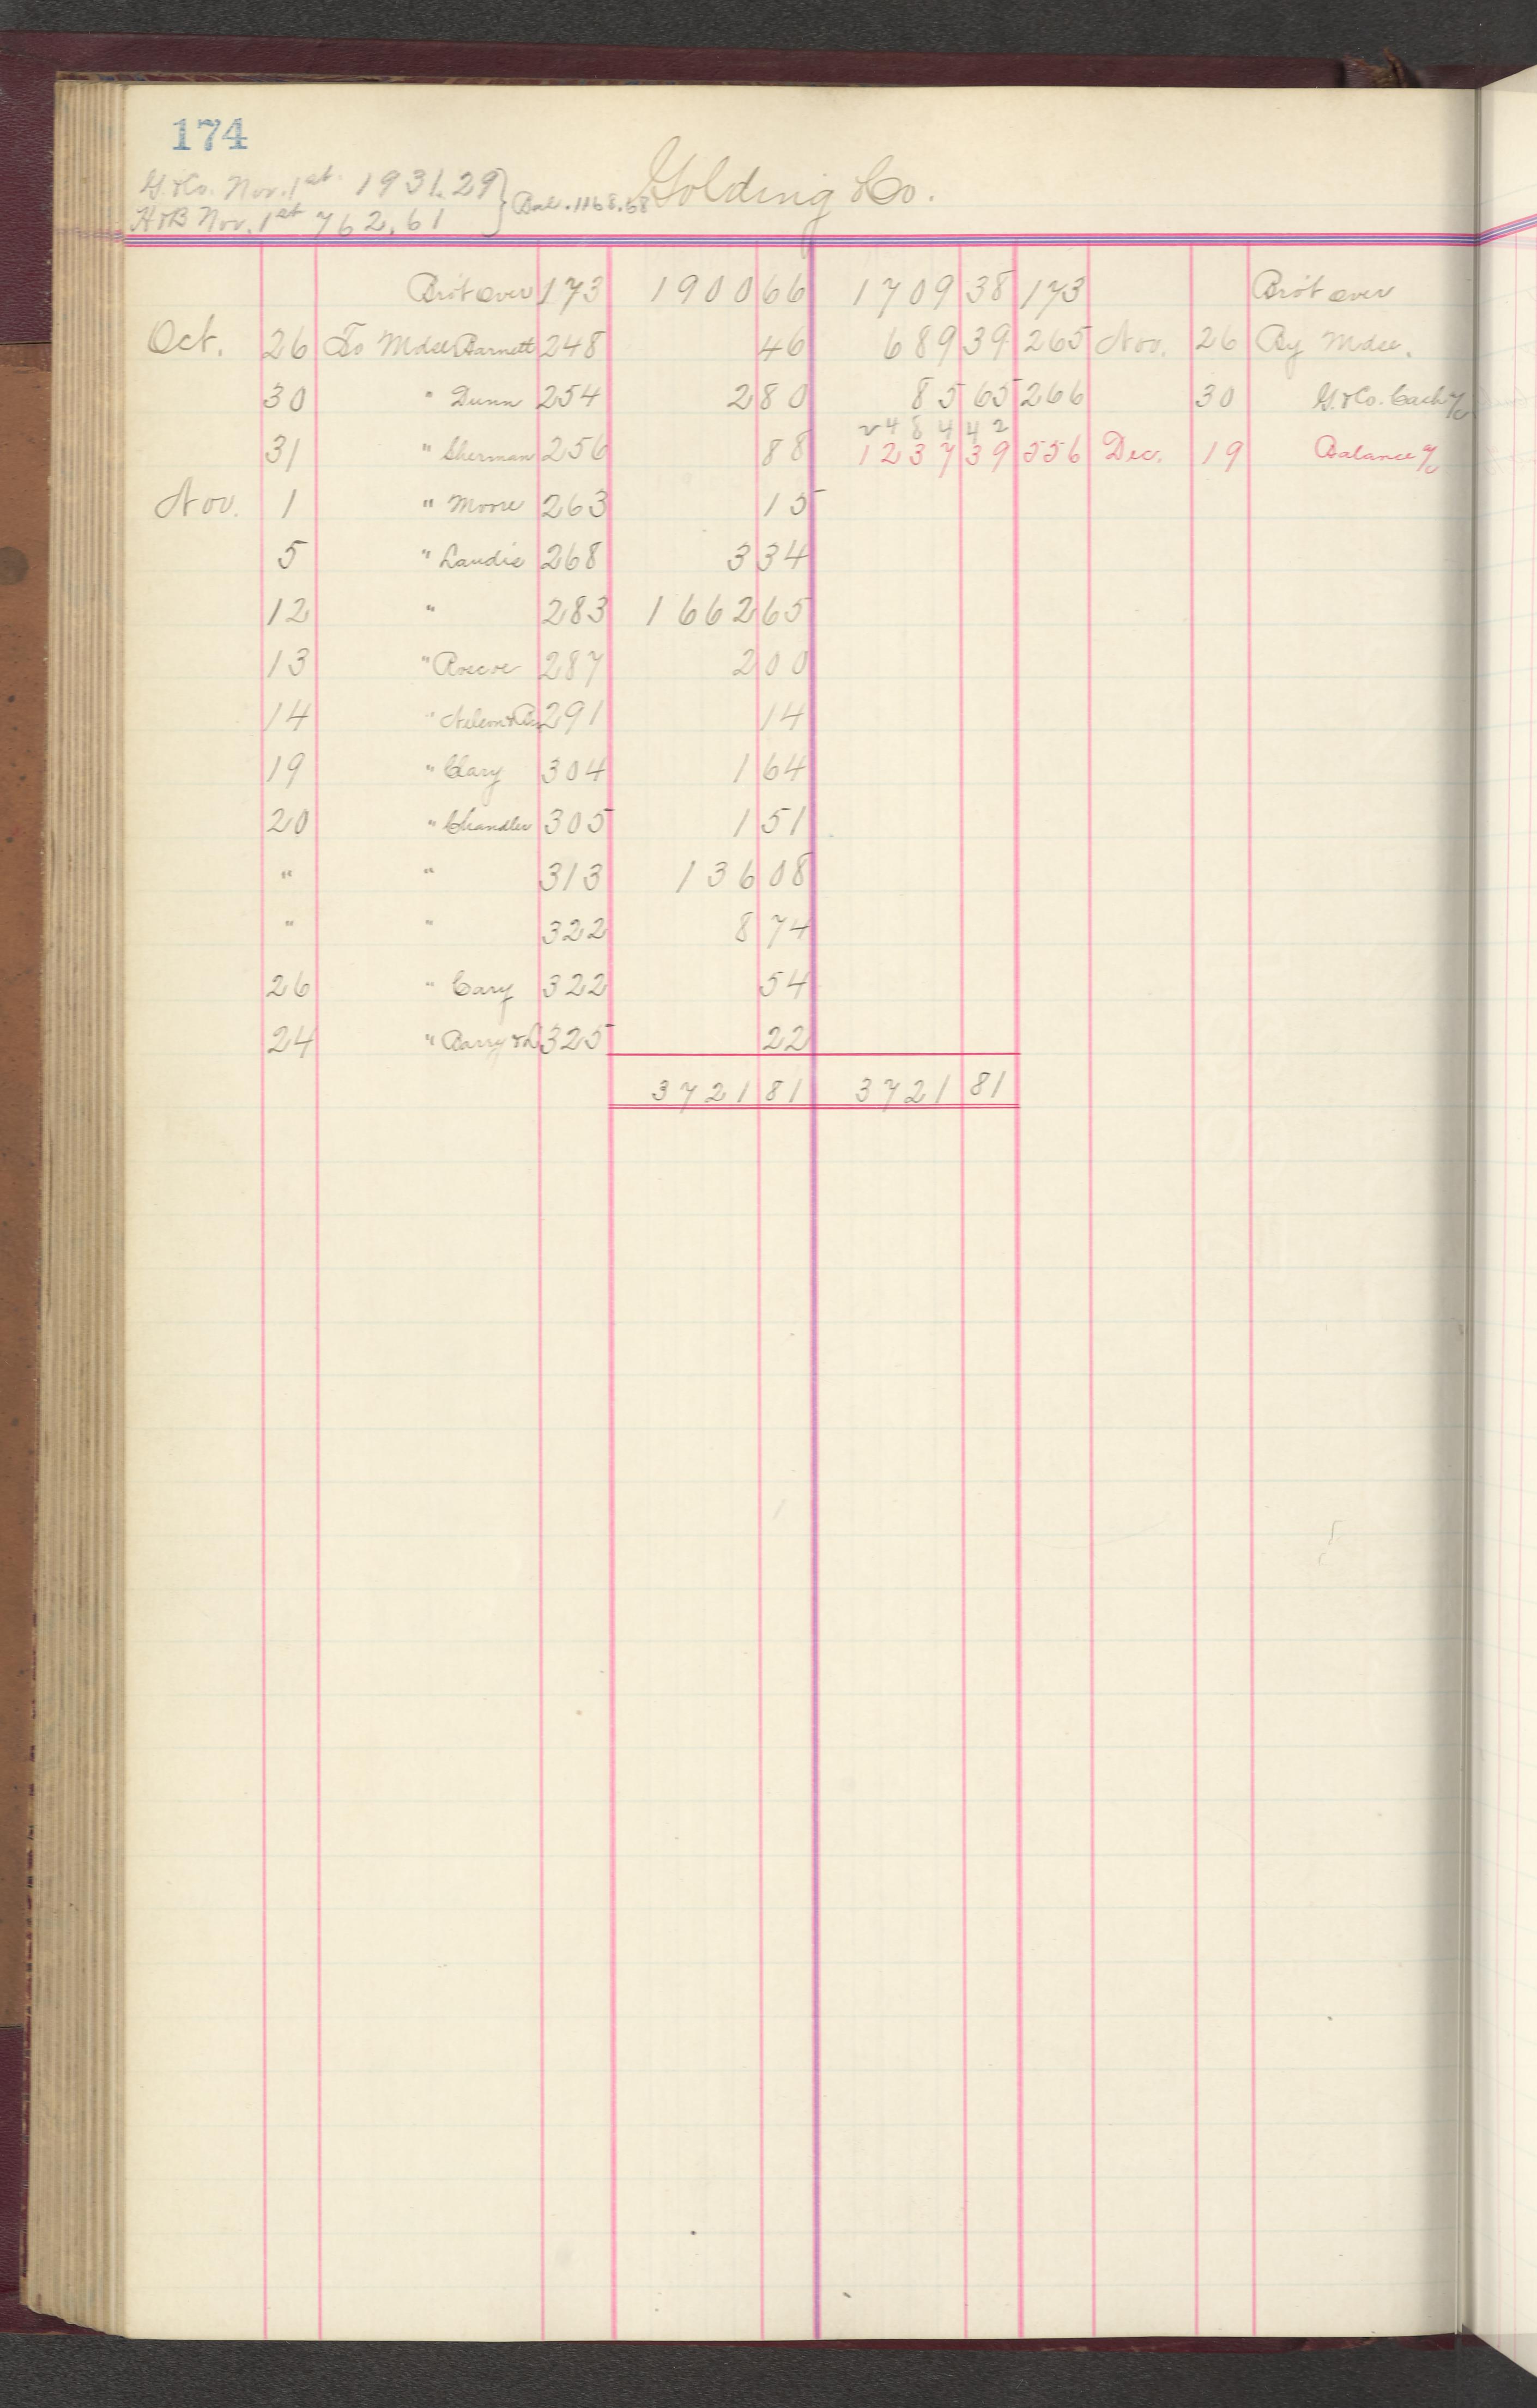 174
G. & Co. Nov. 1st. 1931.29
H & B Nov. 1st 762.61
Bal. 1168.68
Golding & Co.
Bro't over 173 1900 66 1709 38 173 Bro't over
Oct. 26 To Mdse Barnett 248 46 689 39 265 Nov. 26 By Mdse.
30 " Dunn 254 2 80 85 65 266 30 G. & Co. Cash a/c
2484 42
31 " Sherman 256 88 1237 39 556 Dec. 19 Balance a/c
Nov. 1 " Moore 263 15
5 " Landie 268 3 34
12 " 283 1662 65
13 " Roscoe 287 2 00
14 " Nelson & 291 14
19 " Clary 304 1 64
20 " Chandler 305 1 51
" " 313 136 08
" " 322 8 74
26 " Cary 322 54
24 " Barry & L 325 22
3721 81 3721 81